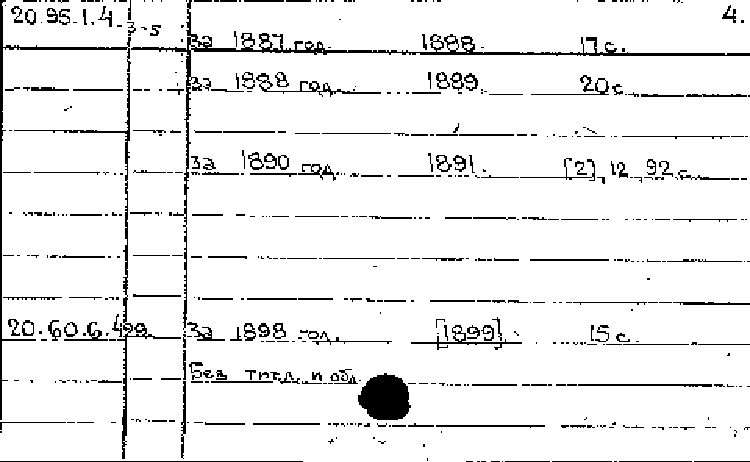 20.95.1.4.3-5 4.
За 1887 год 1888. 17 с.
За 1888 год. 1889. 20 с.
За 1890 год. 1891. [2], 12, 92 с.
20.60.6.499. За 1898 год. [1899]. 15 с.
Без тит.л. и обл.